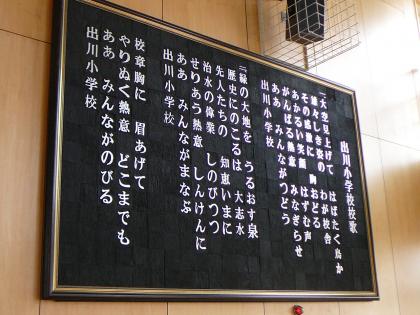 出川小学校校歌
一大空見上げて はばたく鳥か
雄々しき姿の わが校舎
その伝統に 胸おどる
あかるい笑顔 はずむ声
がんばる熱意 みなぎらせ
ああ みんながつどう
出川小学校
二緑の大地を うるおす泉
歴史にのこるは 大志水
先人たちの 知恵いまに
治水の偉業 しのびつつ
せりあう熱意 しんけんに
ああ みんながまなぶ
出川小学校
校章胸に 眉あげて
やりぬく熱意 どこまでも
ああ みんながのびる
出川小学校